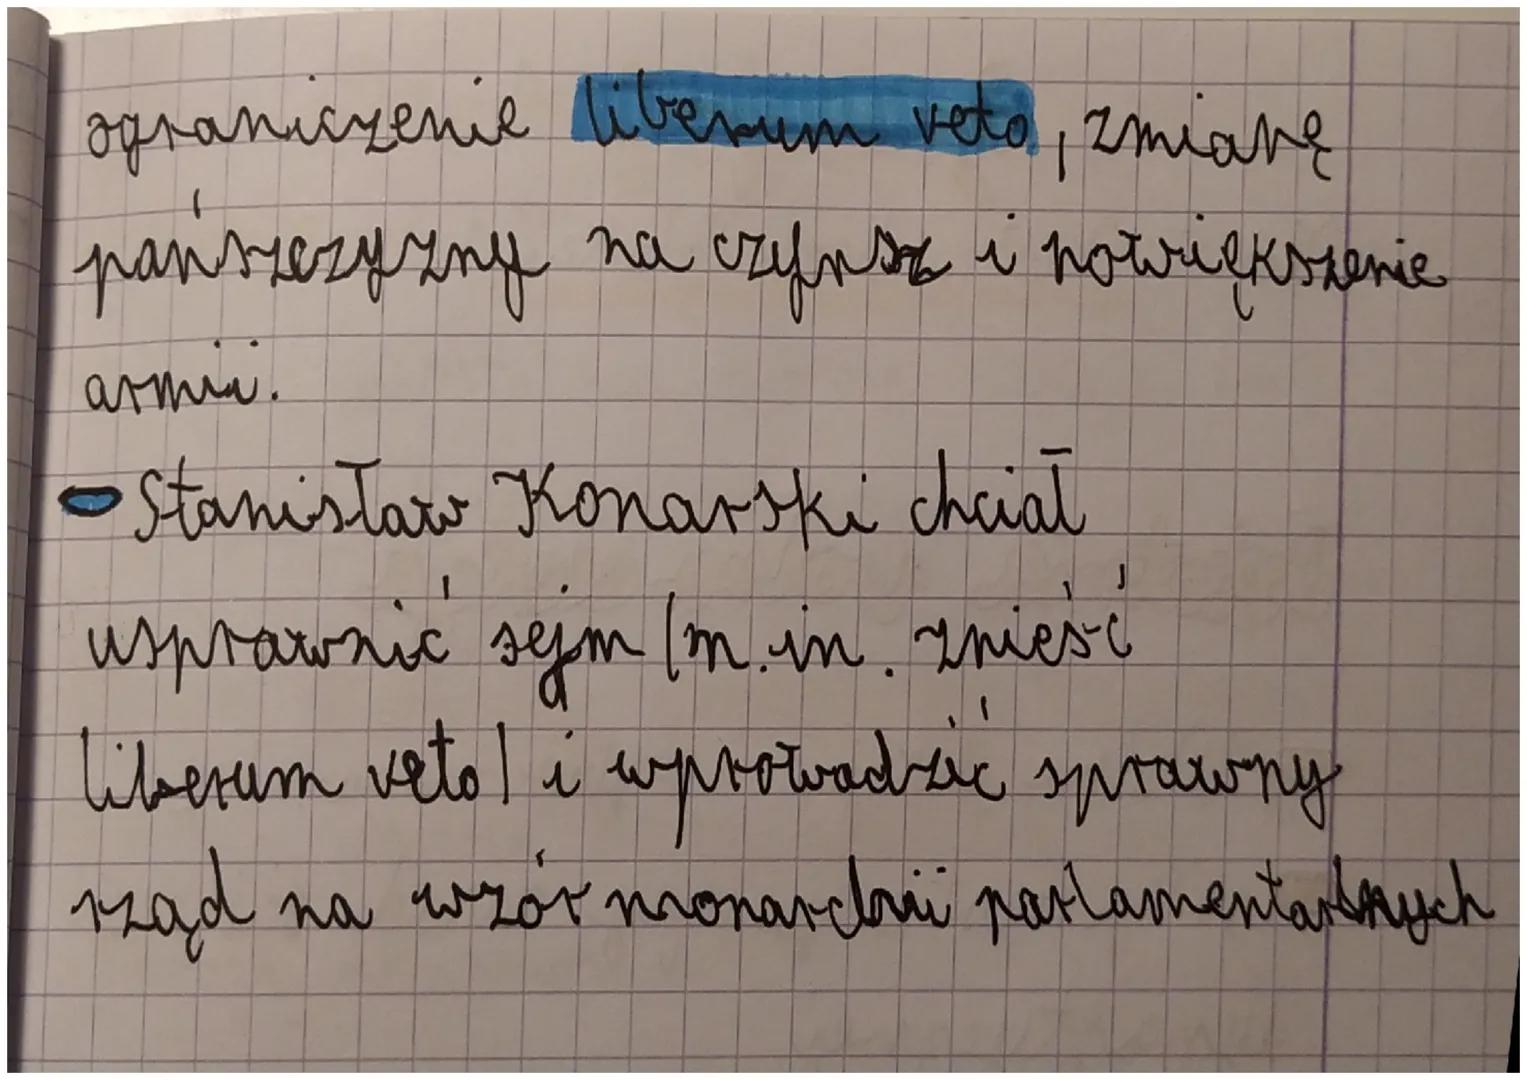 ograniczenie liberum veto, zmianę
pańszczyzny na czynsz i powiększenie
armii.
- Stanisław Konarski chciał
usprawnić sejm (m.in. znieść
liberum veto) i wprowadzić sprawny
rząd na wzór monarchii parlamentarnych